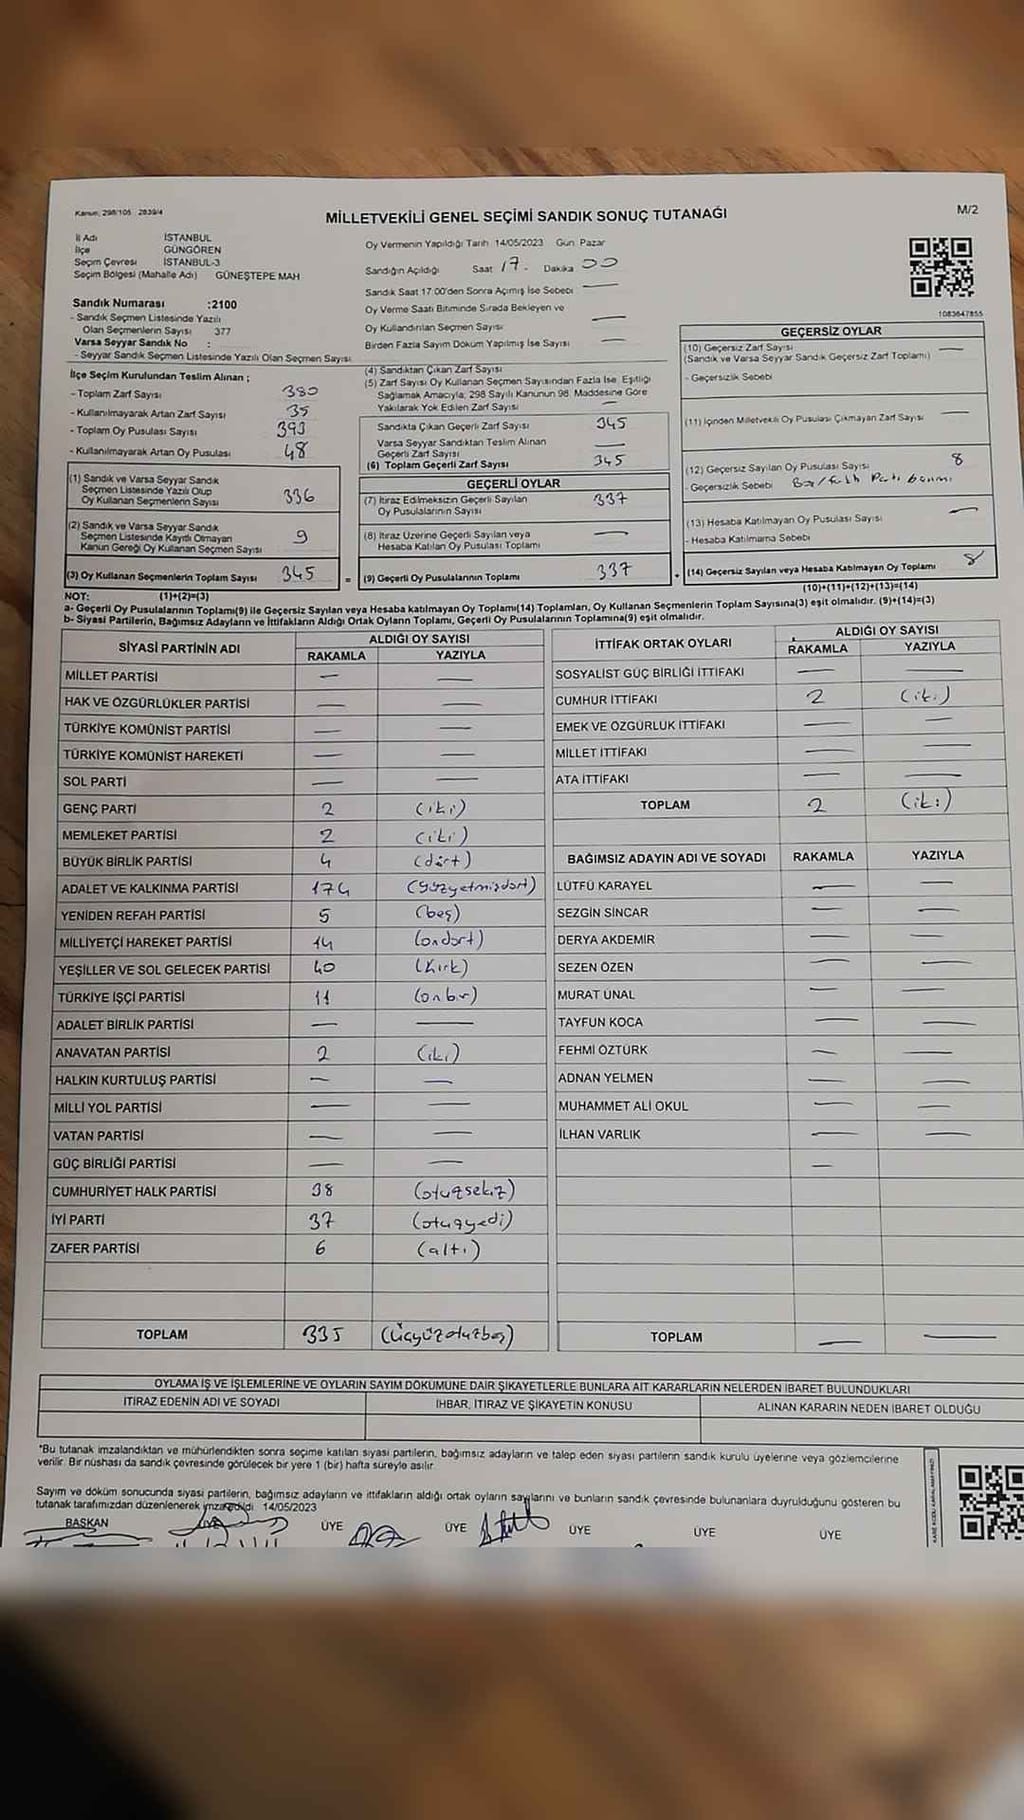 Kanun: 298/105 2839/4
MİLLETVEKİLİ GENEL SEÇİMİ SANDIK SONUÇ TUTANAĞI
M/2
İl Adı İSTANBUL
İlçe GÜNGÖREN
Seçim Çevresi İSTANBUL-3
Seçim Bölgesi (Mahalle Adı) GÜNEŞTEPE MAH
Sandık Numarası :2100
- Sandık Seçmen Listesinde Yazılı
Olan Seçmenlerin Sayısı 377
Varsa Seyyar Sandık No :
- Seyyar Sandık Seçmen Listesinde Yazılı Olan Seçmen Sayısı:
Oy Vermenin Yapıldığı Tarih 14/05/2023 Gün Pazar
Sandığın Açıldığı Saat 17. Dakika 00
Sandık Saat 17:00'den Sonra Açılmış İse Sebebi —
Oy Verme Saati Bitiminde Sırada Bekleyen ve
Oy Kullandırılan Seçmen Sayısı —
Birden Fazla Sayım Döküm Yapılmış İse Sayısı —
1083647855
İlçe Seçim Kurulundan Teslim Alınan ;
- Toplam Zarf Sayısı 380
- Kullanılmayarak Artan Zarf Sayısı 35
- Toplam Oy Pusulası Sayısı 393
- Kullanılmayarak Artan Oy Pusulası 48
(1) Sandık ve Varsa Seyyar Sandık
Seçmen Listesinde Yazılı Olup
Oy Kullanan Seçmenlerin Sayısı 336
(2) Sandık ve Varsa Seyyar Sandık
Seçmen Listesinde Kayıtlı Olmayan
Kanun Gereği Oy Kullanan Seçmen Sayısı 9
(3) Oy Kullanan Seçmenlerin Toplam Sayısı 345 =
(4) Sandıktan Çıkan Zarf Sayısı
(5) Zarf Sayısı Oy Kullanan Seçmen Sayısından Fazla İse, Eşitliği
Sağlamak Amacıyla, 298 Sayılı Kanunun 98. Maddesine Göre
Yakılarak Yok Edilen Zarf Sayısı —
Sandıkta Çıkan Geçerli Zarf Sayısı 345
Varsa Seyyar Sandıktan Teslim Alınan
Geçerli Zarf Sayısı —
(6) Toplam Geçerli Zarf Sayısı 345
GEÇERLİ OYLAR
(7) İtiraz Edilmeksizin Geçerli Sayılan
Oy Pusulalarının Sayısı 337
(8) İtiraz Üzerine Geçerli Sayılan veya
Hesaba Katılan Oy Pusulası Toplamı —
(9) Geçerli Oy Pusulalarının Toplamı 337 +
GEÇERSİZ OYLAR
(10) Geçersiz Zarf Sayısı —
(Sandık ve Varsa Seyyar Sandık Geçersiz Zarf Toplamı)
- Geçersizlik Sebebi
(11) İçinden Milletvekili Oy Pusulası Çıkmayan Zarf Sayısı —
(12) Geçersiz Sayılan Oy Pusulası Sayısı 8
- Geçersizlik Sebebi
(13) Hesaba Katılmayan Oy Pusulası Sayısı —
- Hesaba Katılmama Sebebi
(14) Geçersiz Sayılan veya Hesaba Katılmayan Oy Toplamı 8
(10)+(11)+(12)+(13)=(14)
NOT: (1)+(2)=(3)
a- Geçerli Oy Pusulalarının Toplamı(9) ile Geçersiz Sayılan veya Hesaba katılmayan Oy Toplamı(14) Toplamları, Oy Kullanan Seçmenlerin Toplam Sayısına(3) eşit olmalıdır. (9)+(14)=(3)
b- Siyasi Partilerin, Bağımsız Adayların ve İttifakların Aldığı Ortak Oyların Toplamı, Geçerli Oy Pusulalarının Toplamına(9) eşit olmalıdır.
SİYASİ PARTİNİN ADI ALDIĞI OY SAYISI
RAKAMLA YAZIYLA
MİLLET PARTİSİ — —
HAK VE ÖZGÜRLÜKLER PARTİSİ — —
TÜRKİYE KOMÜNİST PARTİSİ — —
TÜRKİYE KOMÜNİST HAREKETİ — —
SOL PARTİ — —
GENÇ PARTİ 2 (iki)
MEMLEKET PARTİSİ 2 (iki)
BÜYÜK BİRLİK PARTİSİ 4 (dört)
ADALET VE KALKINMA PARTİSİ 174 (yüzyetmişdört)
YENİDEN REFAH PARTİSİ 5 (beş)
MİLLİYETÇİ HAREKET PARTİSİ 14 (ondört)
YEŞİLLER VE SOL GELECEK PARTİSİ 40 (kırk)
TÜRKİYE İŞÇİ PARTİSİ 11 (onbir)
ADALET BİRLİK PARTİSİ — —
ANAVATAN PARTİSİ 2 (iki)
HALKIN KURTULUŞ PARTİSİ — —
MİLLİ YOL PARTİSİ — —
VATAN PARTİSİ — —
GÜÇ BİRLİĞİ PARTİSİ — —
CUMHURİYET HALK PARTİSİ 38 (otuzsekiz)
İYİ PARTİ 37 (otuzyedi)
ZAFER PARTİSİ 6 (altı)
TOPLAM 335 (üçyüzotuzbeş)
İTTİFAK ORTAK OYLARI ALDIĞI OY SAYISI
RAKAMLA YAZIYLA
SOSYALİST GÜÇ BİRLİĞİ İTTİFAKI — —
CUMHUR İTTİFAKI 2 (iki)
EMEK VE ÖZGÜRLÜK İTTİFAKI — —
MİLLET İTTİFAKI — —
ATA İTTİFAKI — —
TOPLAM 2 (iki)
BAĞIMSIZ ADAYIN ADI VE SOYADI RAKAMLA YAZIYLA
LÜTFÜ KARAYEL — —
SEZGİN SİNCAR — —
DERYA AKDEMİR — —
SEZEN ÖZEN — —
MURAT ÜNAL — —
TAYFUN KOCA — —
FEHMİ ÖZTÜRK — —
ADNAN YELMEN — —
MUHAMMET ALİ OKUL — —
İLHAN VARLIK — —
—
TOPLAM — —
OYLAMA İŞ VE İŞLEMLERİNE VE OYLARIN SAYIM DÖKÜMÜNE DAİR ŞİKAYETLERLE BUNLARA AİT KARARLARIN NELERDEN İBARET BULUNDUKLARI
İTİRAZ EDENİN ADI VE SOYADI İHBAR, İTİRAZ VE ŞİKAYETİN KONUSU ALINAN KARARIN NEDEN İBARET OLDUĞU
*Bu tutanak imzalandıktan ve mühürlendikten sonra seçime katılan siyasi partilerin, bağımsız adayların ve talep eden siyasi partilerin sandık kurulu üyelerine veya gözlemcilerine
verilir. Bir nüshası da sandık çevresinde görülecek bir yere 1 (bir) hafta süreyle asılır.
Sayım ve döküm sonucunda siyasi partilerin, bağımsız adayların ve ittifakların aldığı ortak oyların sayılarını ve bunların sandık çevresinde bulunanlara duyrulduğunu gösteren bu
tutanak tarafımızdan düzenlenerek imzaedildi. 14/05/2023
BAŞKAN ÜYE ÜYE ÜYE ÜYE ÜYE